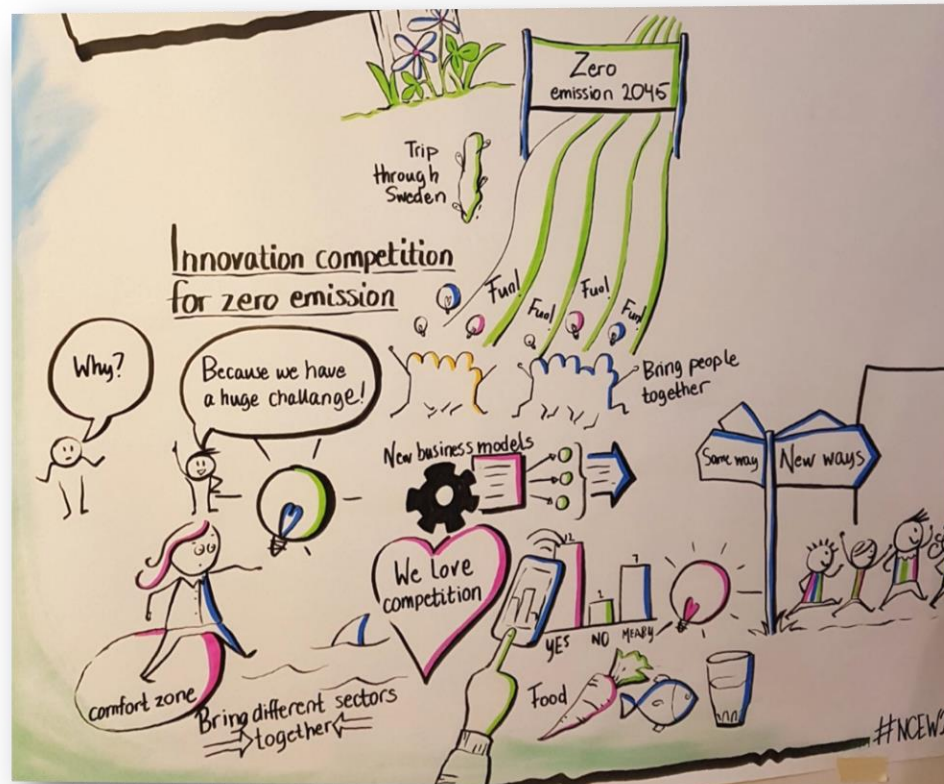 Zero
emission 2045
Trip
through
Sweden
Innovation competition
for zero emission
Fun!
Fun!
Fun!
Fun!
Why?
Because we have
a huge challange!
Bring people
together
New business models
Same way
New ways
We Love
competition
12
1
7
YES NO MEABY
comfort zone
Bring different sectors
together
Food